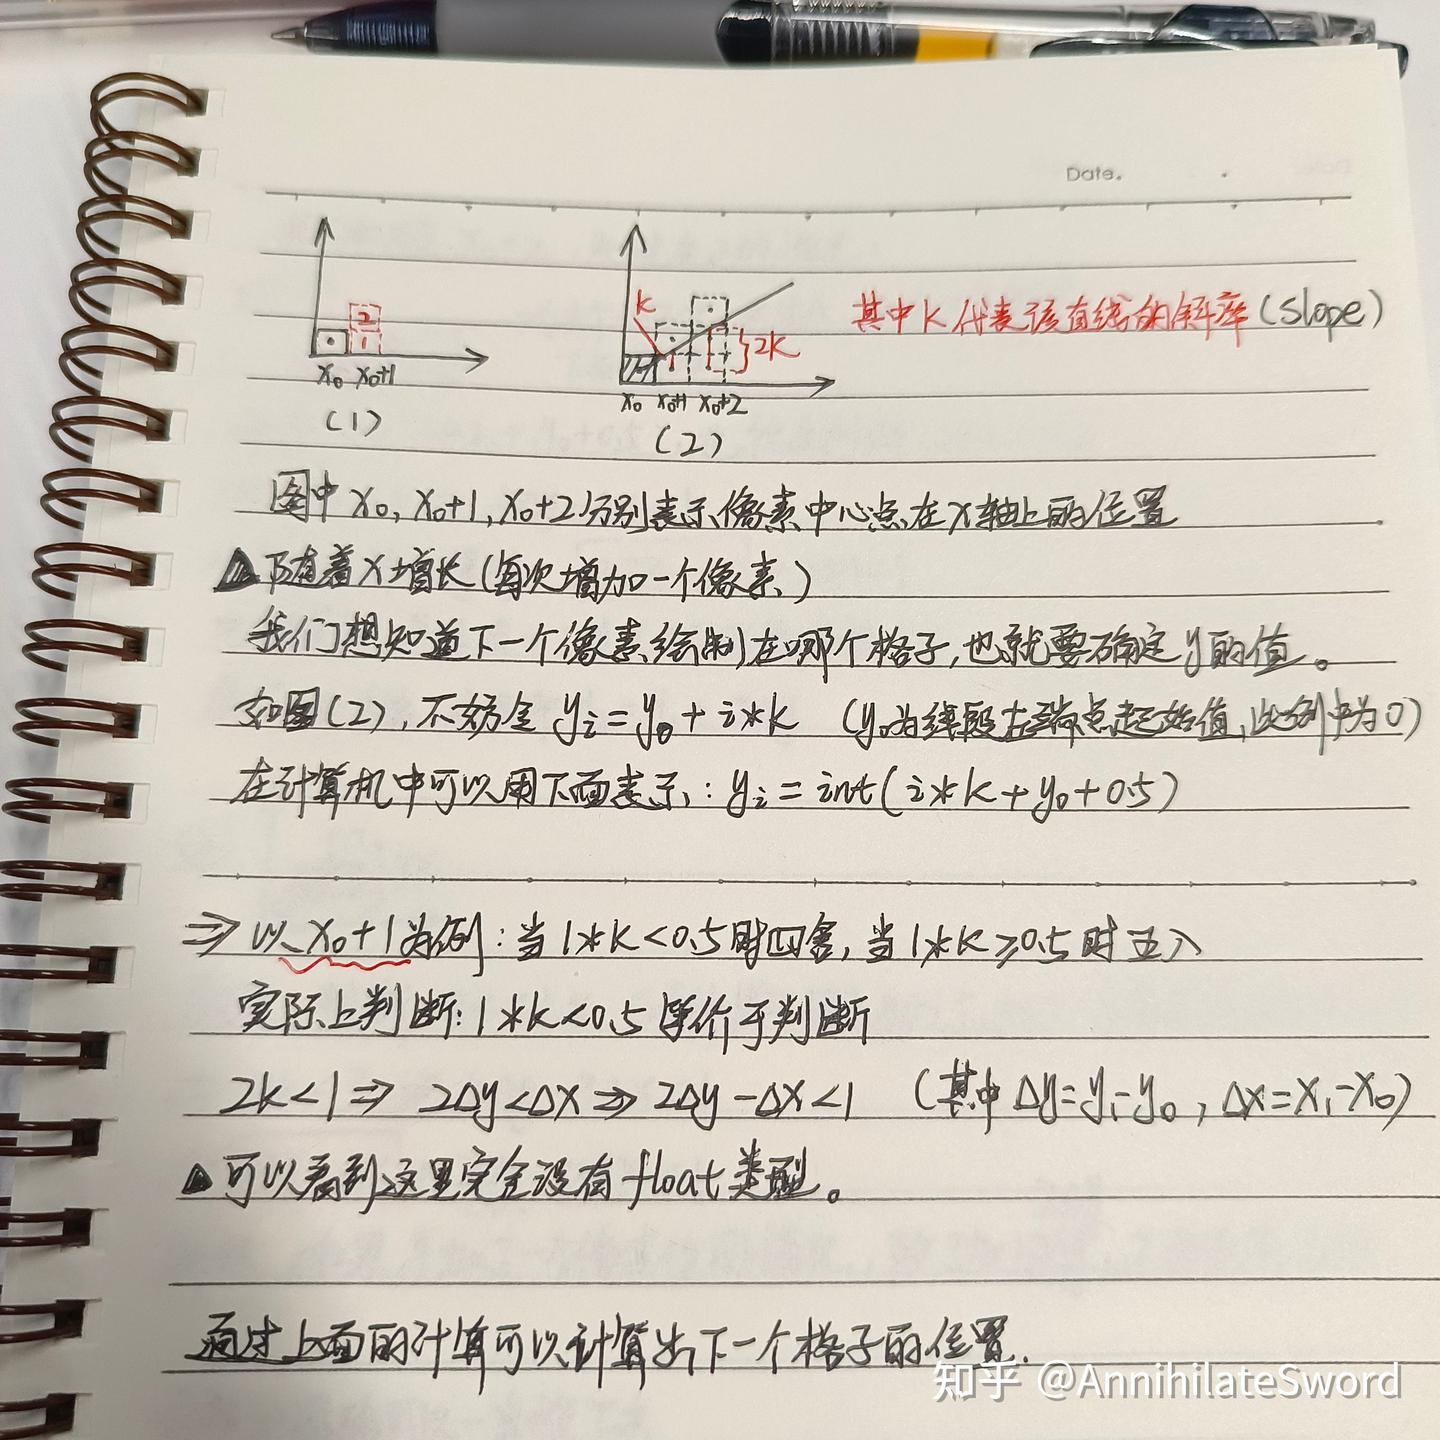 Date.
2
1
x₀ x₀+1
(1)
k
}2k
x₀ x₀+1 x₀+2
(2)
其中k代表该直线的斜率(slope)
图中x₀,x₀+1,x₀+2分别表示像素中心点在x轴上的位置
▲随着x增长(每次增加一个像素)
我们想知道下一个像素绘制在哪个格子,也就要确定y的值。
如图(2),不妨令 yᵢ=y₀+i*k (y₀为线段左端点起始值,此例中为0)
在计算机中可以用下面表示:yᵢ=int(i*k+y₀+0.5)
⇒以x₀+1为例:当1*k<0.5时四舍,当1*k≥0.5时五入
实际上判断:1*k<0.5等价于判断
2k<1⇒2Δy<Δx⇒2Δy-Δx<1 (其中Δy=y₁-y₀,Δx=x₁-x₀)
▲可以看到这里完全没有float类型。
通过上面的计算可以计算出下一个格子的位置.
知乎 @AnnihilateSword